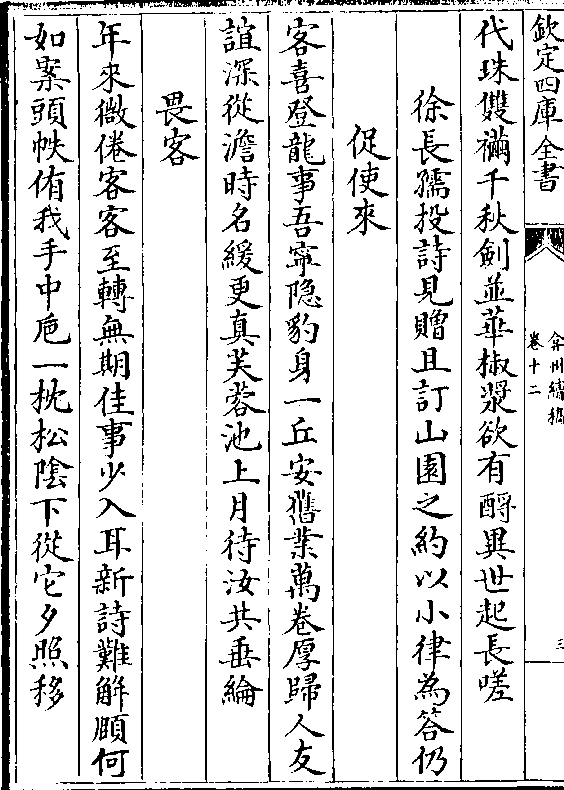 欽定四庫全書
弇州續稿
卷十二
三
代珠雙襧千秋劍並華椒漿欲有酹異世起長嗟
徐長孺投詩見贈且訂山園之約以小律為答仍
促使來
客喜登龍事吾寧隐豹身一丘安舊業萬卷厚歸人友
誼深從澹時名緩更真芙蓉池上月待汝共垂綸
畏客
年來微倦客客至轉無期佳事少入耳新詩難解頤何
如案頭帙侑我手中巵一枕松陰下從它夕照移